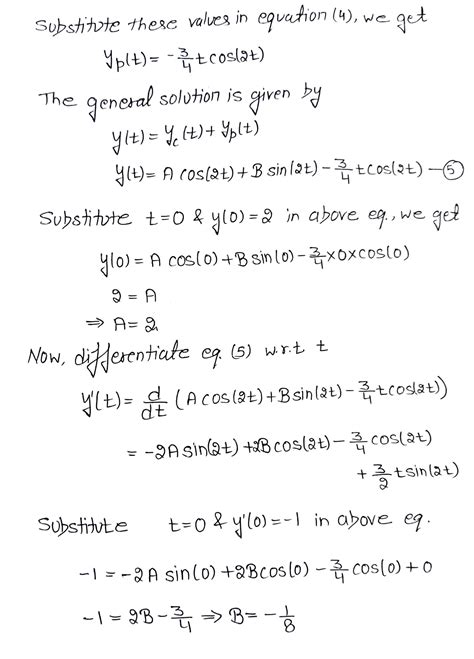 Substitute these values in equation (4), we get
yp(t) = -3/4 t cos(2t)
The general solution is given by
y(t) = yc(t) + yp(t)
y(t) = A cos(2t) + B sin(2t) - 3/4 t cos(2t) —⑤
Substitute t=0 & y(0)=2 in above eq., we get
y(0) = A cos(0) + B sin(0) - 3/4 × 0 × cos(0)
2 = A
⇒ A = 2.
Now, differentiate eq. (5) w.r.t t
y'(t) = d/dt (A cos(2t) + B sin(2t) - 3/4 t cos(2t))
= -2A sin(2t) + 2B cos(2t) - 3/4 cos(2t)
+ 3/2 t sin(2t)
Substitute t=0 & y'(0)=-1 in above eq.
-1 = -2A sin(0) + 2B cos(0) - 3/4 cos(0) + 0
-1 = 2B - 3/4 ⇒ B = -1/8